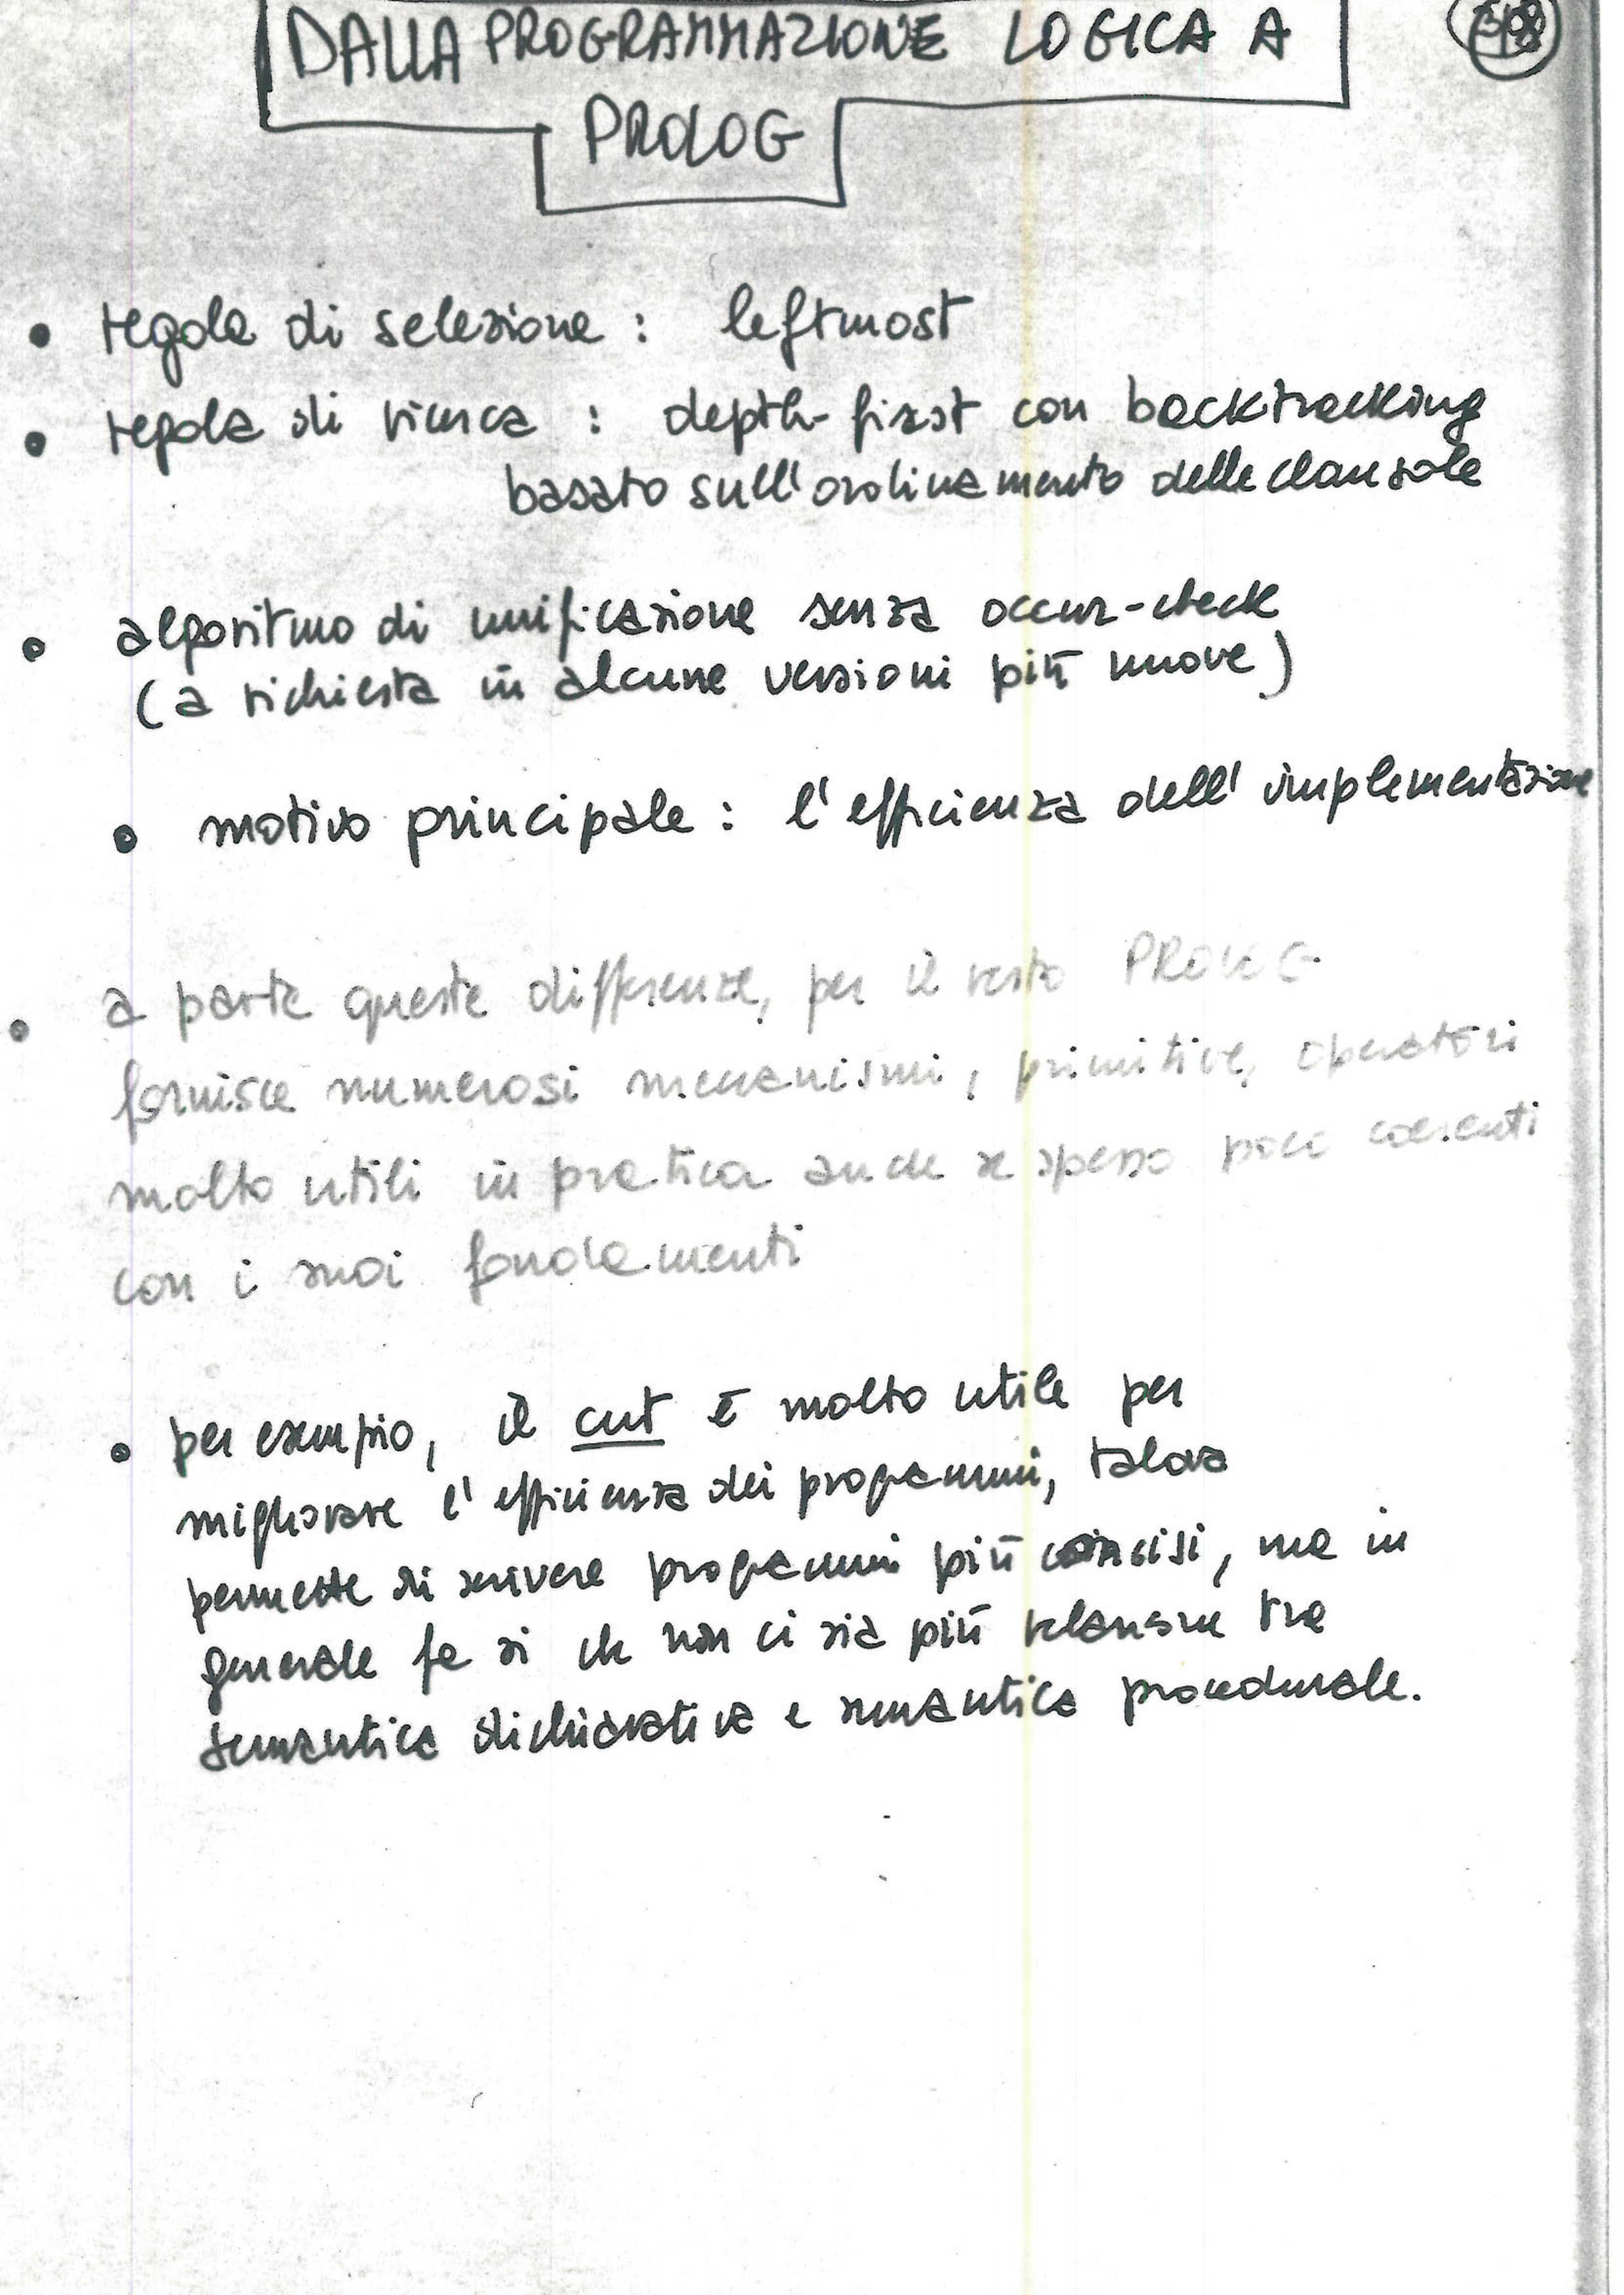 DALLA PROGRAMMAZIONE LOGICA A
PROLOG
• regola di selezione : leftmost
• regola di ricerca : depth-first con backtracking
basato sull'ordinamento delle clausole
• algoritmo di unificazione senza occur-check
(a richiesta in alcune versioni più nuove)
• motivo principale : l'efficienza dell'implementazione
• a parte queste differenze, per il resto PROLOG
fornisce numerosi meccanismi, primitive, operatori
molto utili in pratica anche se spesso poco coerenti
con i suoi fondamenti
• per esempio, il cut è molto utile per
migliorare l'efficienza dei programmi, talora
permette di scrivere programmi più concisi, ma in
generale fa sì che non ci sia più relazione tra
semantica dichiarativa e semantica procedurale.